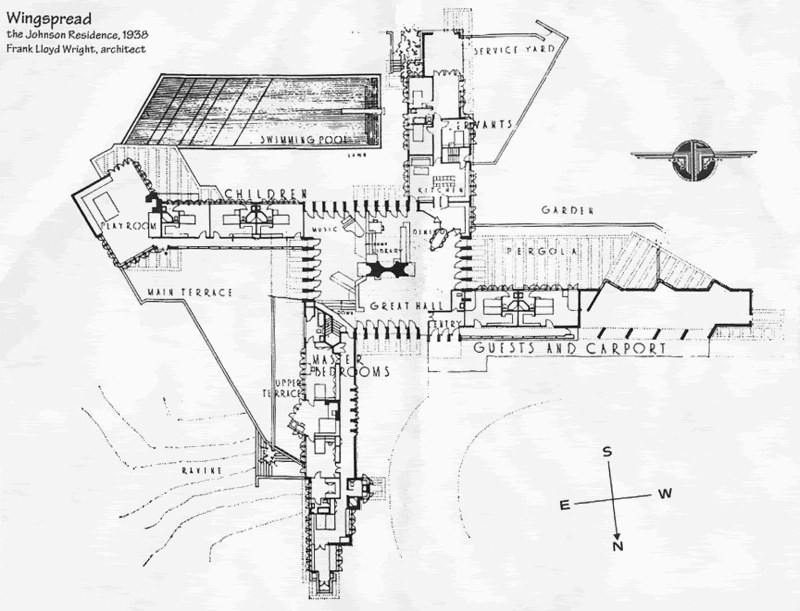 Wingspread
the Johnson Residence, 1938
Frank Lloyd Wright, architect
SERVICE YARD
SERVANTS
SWIMMING POOL
KITCHEN
CHILDREN
GARDEN
PLAYROOM
MUSIC
DINING
LIBRARY
PERGOLA
MAIN TERRACE
GREAT HALL
ENTRY
GUESTS AND CARPORT
MASTER
BEDROOMS
UPPER
TERRACE
RAVINE
S
E
W
N